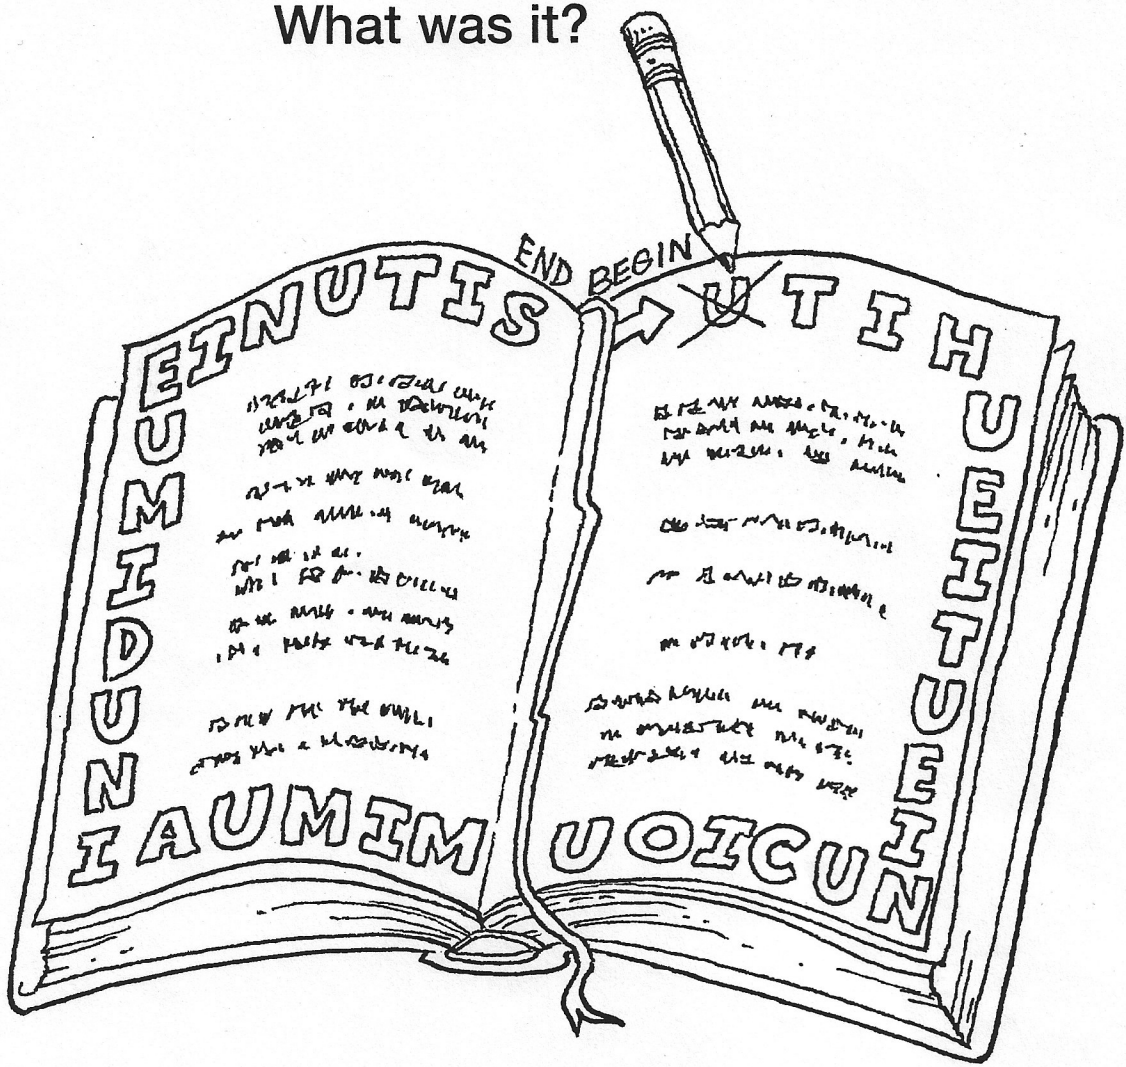 What was it?
END BEGIN
UTIH
UEITUEIN
UCIOU
MIMUAI
NUDIMU
EINUTIS